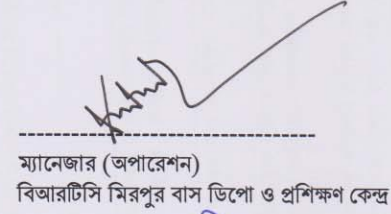 ম্যানেজার (অপারেশন)
বিআরটিসি মিরপুর বাস ডিপো ও প্রশিক্ষণ কেন্দ্র